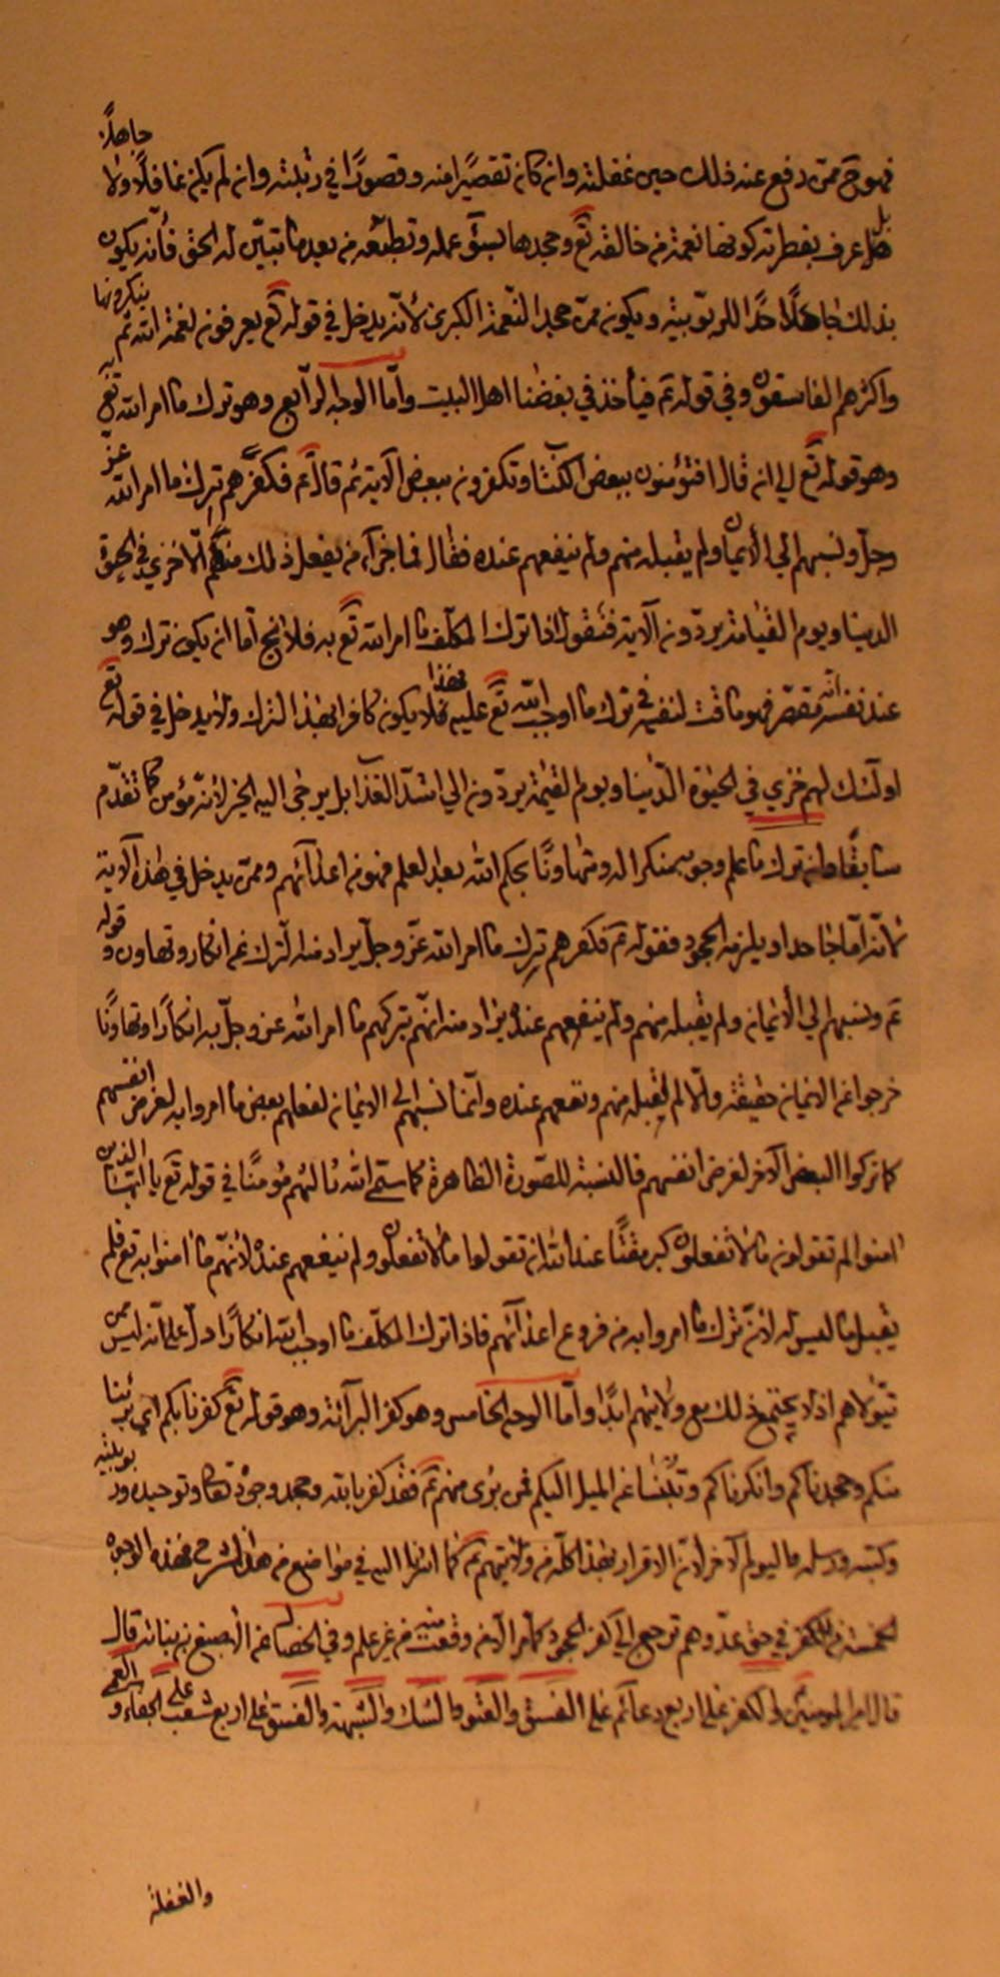 فهو ح ممن رفع عنه ذلك حين غفلته وان كان تقصيرا منه وقصورا في رتبته وان لم يكن غافلا ولا جاهلا
بل عرف بفطرته كونها نعمة من خالقه تع وجحدها بسوء عمله وتطبعه من بعد ما تبين له الحق فانه يكون
بذلك جاحدا للربوبية ويكون ممن جحد النعمة الكبرى لانه يدخل في قوله تع يعرفون نعمة الله ثم ينكرونها
واكثرهم الفاسقون وفي قوله تم فياخذ في بغضنا اهل البيت واما الوجه الرابع وهو ترك ما امر الله تع به
وهو قوله تع الى ان قال افتؤمنون ببعض الكتاب وتكفرون ببعض الآية ثم قال تم فكفرهم بترك ما امر الله عز
وجل ونسبهم الى الايمان ولم يقبله منهم ولم ينفعهم عنده فقال فما جزآء من يفعل ذلك منكم الا خزي في الحيوة
الدنيا ويوم القيامة يردون الآية فنقول اذا ترك المكلف ما امر الله تع به فلا يخ اما ان يكون ترك وهو
عند نفسه انه مقصر فهو ماقت لنفسه في ترك ما اوجب الله تع عليه فهذا لا يكون كافرا بهذا الترك ولا يدخل في قوله تع
اولئك لهم خزي في الحيوة الدنيا ويوم القيمة يردون الى اشد العذاب بل يرجى اليه الخير لانه مؤمن كما تقدم
سابقا وان ترك ما علم وجوبه منكرا له ومتهاونا بحكم الله بعد العلم فهو من اعدآئهم وممن يدخل في هذه الآية
لانه اما جاحد او يلزمه الجحود فقوله تم فكفرهم بترك ما امر الله عز وجل يراد منه الترك عن انكار وتهاون وقوله
تم ونسبهم الى الايمان ولم يقبله منهم ولم ينفعهم عنده يراد منه انهم بتركهم ما امر الله عز وجل به انكارا وتهاونا
خرجوا عن الايمان حقيقة ولا لم يقبله منهم ونفعهم عنده وانما نسبهم الى الايمان لفعلهم بعض ما امروا به لغرض انفسهم
كما تركوا البعض الآخر لغرض انفسهم فالنسبة للصورة الظاهرة كما سمى الله مؤمنا في قوله تع يا ايها الذين
امنوا لم تقولون ما لا تفعلون كبر مقتا عند الله ان تقولوا ما لا تفعلون ولم ينفعهم عنده لانهم ما امنوا به تع فلم
يقبل ما ليس له لان ترك ما امروا به من فروع اعدآئهم فاذا ترك المكلف ما اوجب الله انكارا دل على انه ليس ممن
يتولاهم اذ لا يجتمع ذلك مع ولايتهم ابدا واما الوجه الخامس وهو كفر البرآئة وهو قوله تع كفرنا بكم اي برئنا
منكم وجحدناكم وانكرناكم عن الميل اليكم فمن برئ منهم تم فقد كفر بالله وجحد وجوده تعالى وتوحيده وربوبيته
وكتبه ورسله واليوم الآخر لان الاقرار بهذا كله من ولايتهم تم كما اشرنا اليه في مواضع من هذا الشرح فهذه الوجوه
الخمسة من الكفر في حق عدوهم ترجع الى كفر الجحود كما مر الا من وقعت منه من غير علم وفي الخصال عن الاصبغ بن نباتة قال
قال امير المؤمنين تم بني الكفر على اربع دعائم على الفسق والعتو والشك والشبهة والفسق على اربع شعب على الجفاء والعمى و
والغفلة